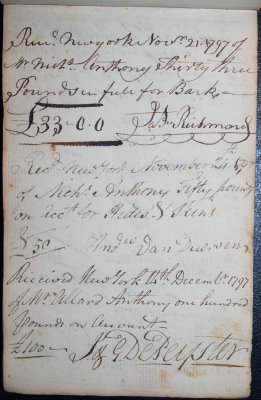 Recd. Newyork Novr. 21. 1797 of
Mr Nichs. Anthony Thirty three
Pounds in full for Bark
£33-0-0 Richmond
Recd New York November 24th 1797
of Nichs Anthony Fifty pounds
on acct. for Hides & Skins
£50 Andw Van
Received New York Decembr. 1797
of Mr. Allard Anthony one hundred
Pounds on Account
£100 DePeyster